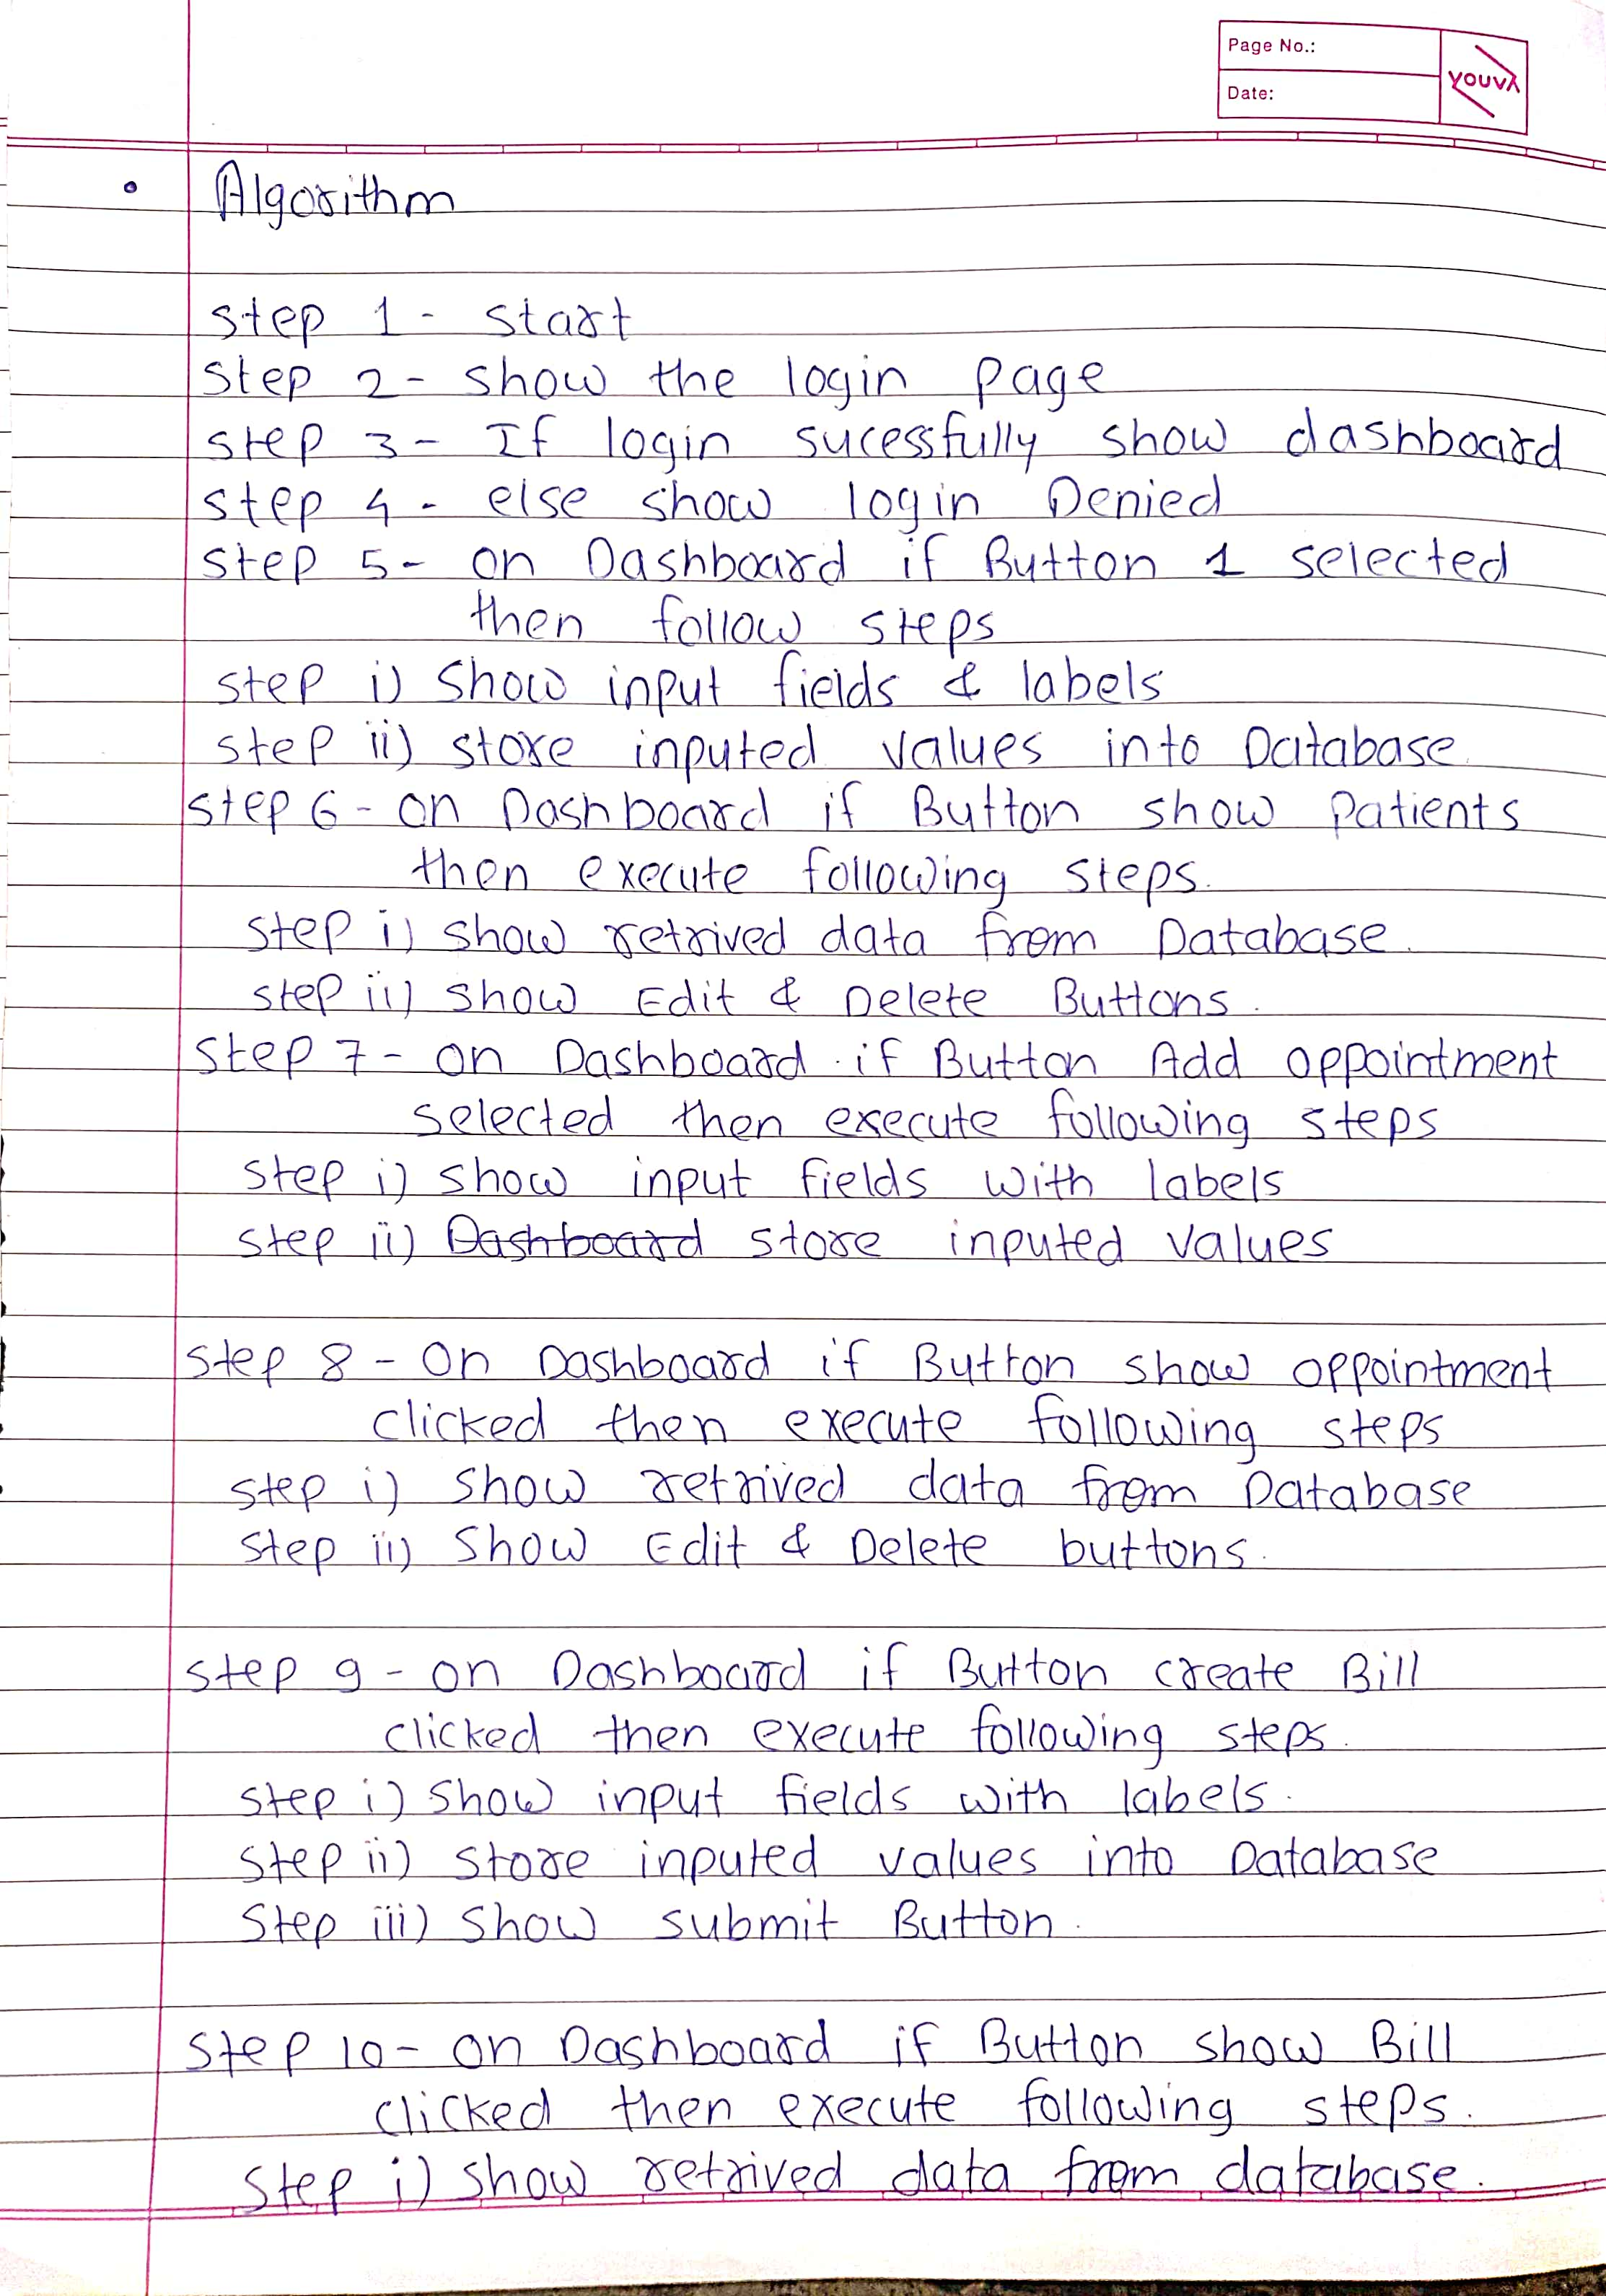 Page No.:
Date:
YOUVA
• Algorithm
step 1 - start
step 2 - show the login page
step 3 - If login sucessfully show dashboard
step 4 - else show login Denied
step 5 - on Dashboard if Button 1 selected
then follow steps
step i) show input fields & labels
step ii) store inputed values into Database
step 6 - on Dashboard if Button show Patients
then execute following steps.
step i) show retrived data from Database.
step ii) show Edit & Delete Buttons.
step 7 - on Dashboard if Button Add appointment
selected then execute following steps
step i) show input fields with labels
step ii) Dashboard store inputed values
step 8 - On Dashboard if Button show appointment
clicked then execute following steps
step i) show retrived data from Database
step ii) show Edit & Delete buttons.
step 9 - on Dashboard if Button create Bill
clicked then execute following steps.
step i) show input fields with labels.
step ii) store inputed values into Database
step iii) show submit Button.
step 10 - on Dashboard if Button show Bill
clicked then execute following steps.
step i) show retrived data from database.